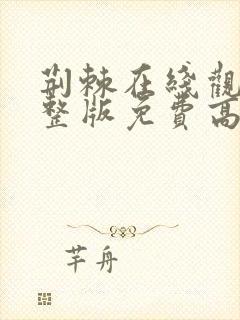 荆棘在綫觀
整版免費高
芊舟